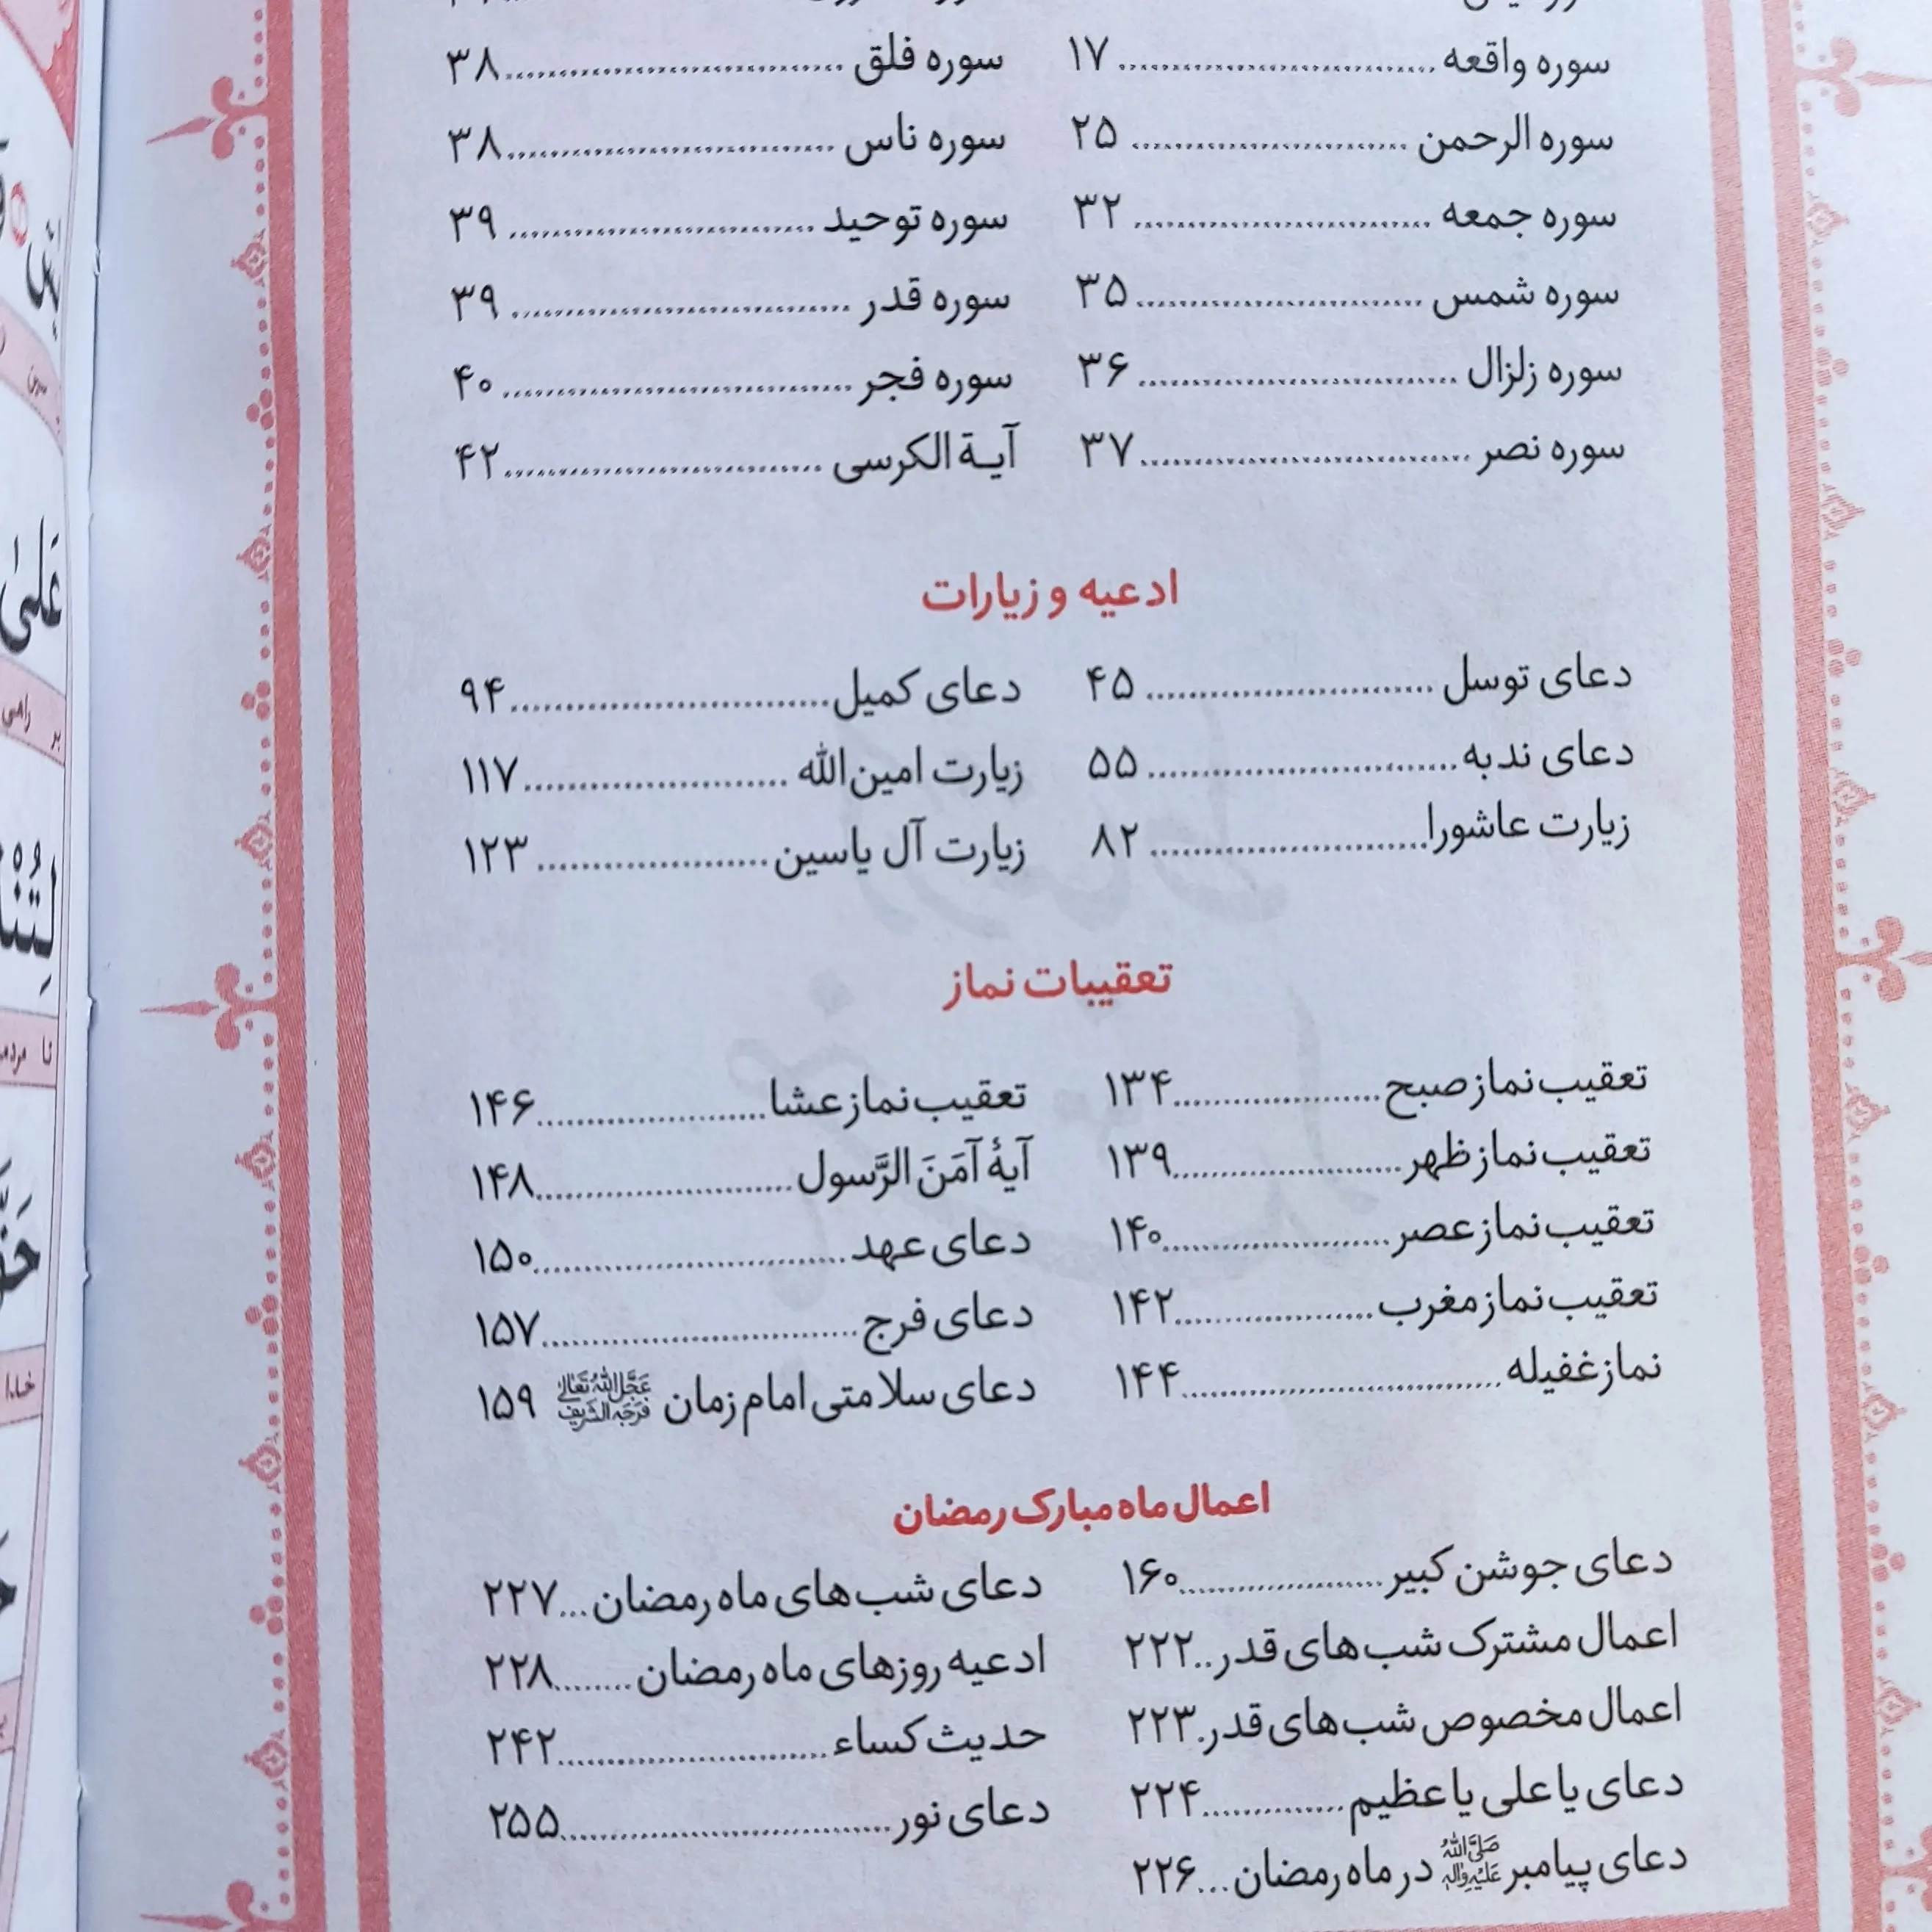 سوره واقعه ................ ۱۷
سوره الرحمن ................ ۲۵
سوره جمعه ................ ۳۲
سوره شمس ................ ۳۵
سوره زلزال ................ ۳۶
سوره نصر ................ ۳۷
سوره فلق ................ ۳۸
سوره ناس ................ ۳۸
سوره توحید ................ ۳۹
سوره قدر ................ ۳۹
سوره فجر ................ ۴۰
آیـة الکرسی ................ ۴۲
ادعیه و زیارات
دعای توسل ................ ۴۵
دعای ندبه ................ ۵۵
زیارت عاشورا ................ ۸۲
دعای کمیل ................ ۹۴
زیارت امین‌الله ................ ۱۱۷
زیارت آل یاسین ................ ۱۲۳
تعقیبات نماز
تعقیب نماز صبح ................ ۱۳۴
تعقیب نماز ظهر ................ ۱۳۹
تعقیب نماز عصر ................ ۱۴۰
تعقیب نماز مغرب ................ ۱۴۲
نماز غفیله ................ ۱۴۴
تعقیب نماز عشا ................ ۱۴۶
آیۀ آمَنَ الرَّسول ................ ۱۴۸
دعای عهد ................ ۱۵۰
دعای فرج ................ ۱۵۷
دعای سلامتی امام زمان عَجَّلَ اللهُ تَعَالی فَرَجَهُ الشَّریف ۱۵۹
اعمال ماه مبارک رمضان
دعای جوشن کبیر ................ ۱۶۰
اعمال مشترک شب‌های قدر .. ۲۲۲
اعمال مخصوص شب‌های قدر . ۲۲۳
دعای یا علی یا عظیم ................ ۲۲۴
دعای پیامبر صَلَّی اللهُ عَلَیْهِ وَآلِهِ در ماه رمضان ... ۲۲۶
دعای شب‌های ماه رمضان ... ۲۲۷
ادعیه روزهای ماه رمضان ........ ۲۲۸
حدیث کساء ................ ۲۴۲
دعای نور ................ ۲۵۵